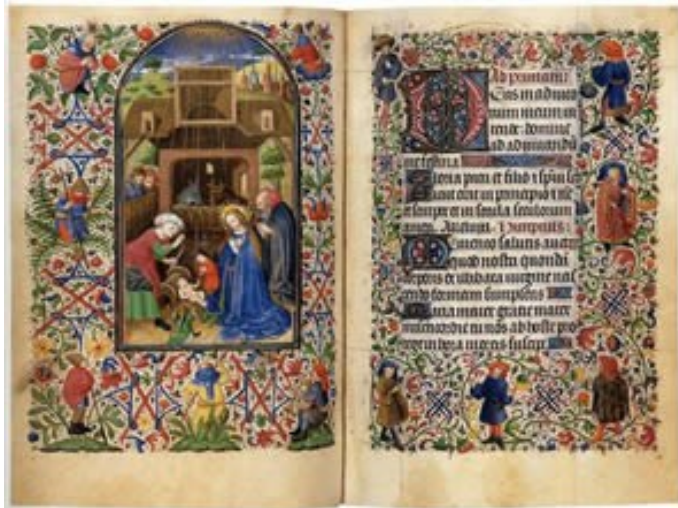 Ad primam
Deus in adiuto
rium meum in
tende domine
ad adiuvandu
me festina
Gloria patri et filio
Sicut erat in principio et
et semper et in secula seculorum
amen. Alleluia.
Memento salutis auctor
quod nostri quondā
corporis ex illibata virgine nas
cendo formam sumpseris
Maria mater gratie mater
misericordie tu nos ab hoste pro
tege in hora mortis suscipe